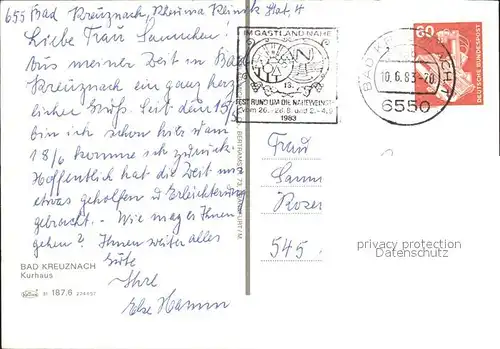 655 Bad Kreuznach, Rheuma Klinik Stat. 4
Liebe Frau
Aus meiner Zeit in Bad
Kreuznach ein ganz herz
licher Gruß. Seit dem 15/5
bin ich schon hier und am
18/6 komme ich zurück.
Hoffentlich hat die Zeit mir
etwas geholfen u. Erleichterung
gebracht. - Wie mag es Ihnen
gehen? Ihnen weiter alles
Gute
Ihre
Else Hamm
BAD KREUZNACH
Kurhaus
31 187.6
BERTRAM
FRANKFURT/M.
IM GASTLAND NAHE
13.
FEST RUND UM DIE NAHEWEINSTR.
vom 26.-28.8. und 2.-4.9.
1983
BAD KREUZNACH 1
10.6.83-20
6550
60
DEUTSCHE BUNDESPOST
Frau
545
privacy protection
Datenschutz